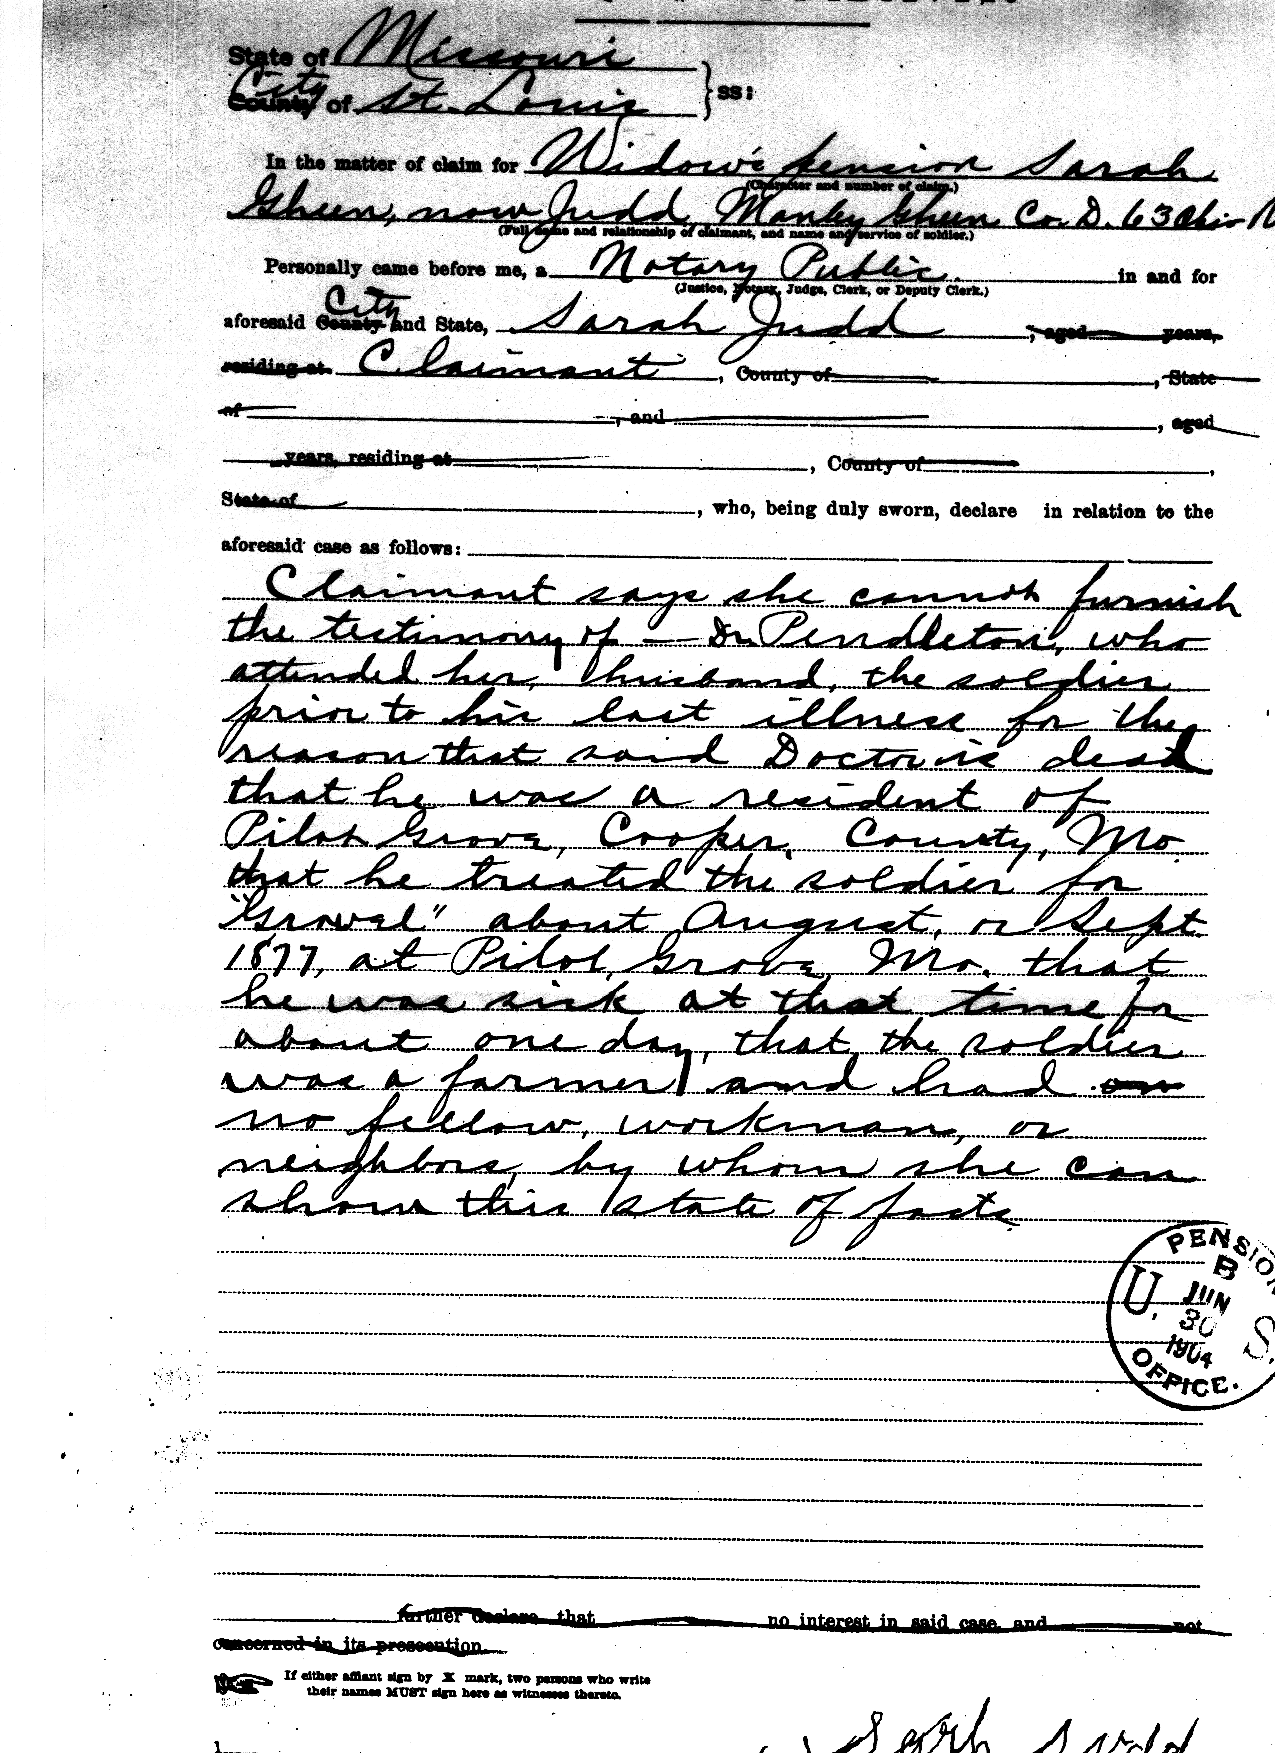 State of Missouri
City
County of St. Louis } ss:
In the matter of claim for Widow's pension Sarah
(Character and number of claim.)
Gheen, now Judd, Manley Gheen Co. D. 63 Ohio
(Full name and relationship of claimant, and name and service of soldier.)
Personally came before me, a Notary Public in and for
(Justice, Notary, Judge, Clerk, or Deputy Clerk.)
City
aforesaid County and State, Sarah Judd, aged years,
residing at Claimant, County of, State
of, and, aged
years, residing at, County of,
State of, who, being duly sworn, declare in relation to the
aforesaid case as follows:
Claimant says she cannot furnish
the testimony of — Dr. Pendleton, who
attended her, husband, the soldier
prior to his last illness for the
reason that said Doctor is dead
that he was a resident of
Pilot Grove, Cooper, County, Mo.
that he treated the soldier for
"Gravel" about August, or Sept.
1877, at Pilot Grove, Mo. that
he was sick at that time for
about one day, that, the soldier
was a farmer, and had
no fellow, workman, or
neighbors, by whom she can
show this state of facts
PENSION
B
U. S.
JUN
30
1904
OFFICE.
further declare that no interest in said case, and not
concerned in its prosecution.
If either affiant sign by X mark, two persons who write
their names MUST sign here as witnesses thereto.
Sarah Judd